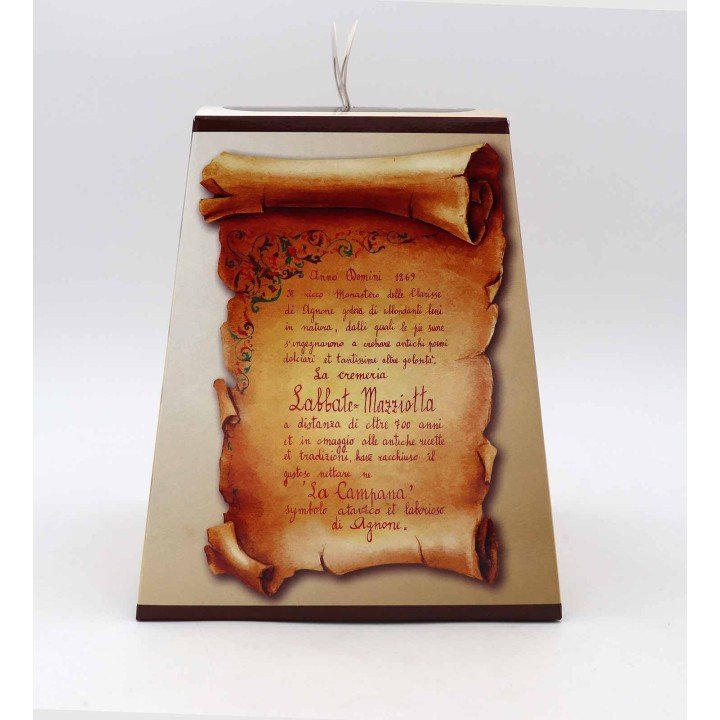 Anno Domini 1269
Il ricco Monastero delle Clarisse
di Agnone godeva di abbondanti beni
in natura, dalli quali le pie suore
s'ingegnarono a crehare antichi poemi
dolciari et tantissime altre golosità.
La cremeria
Labbate-Mazziotta
a distanza di oltre 700 anni
et in omaggio alle antiche ricette
et tradizioni, have racchiuso il
gustoso nettare ne
"La Campana",
symbolo atavico et laborioso
di Agnone.